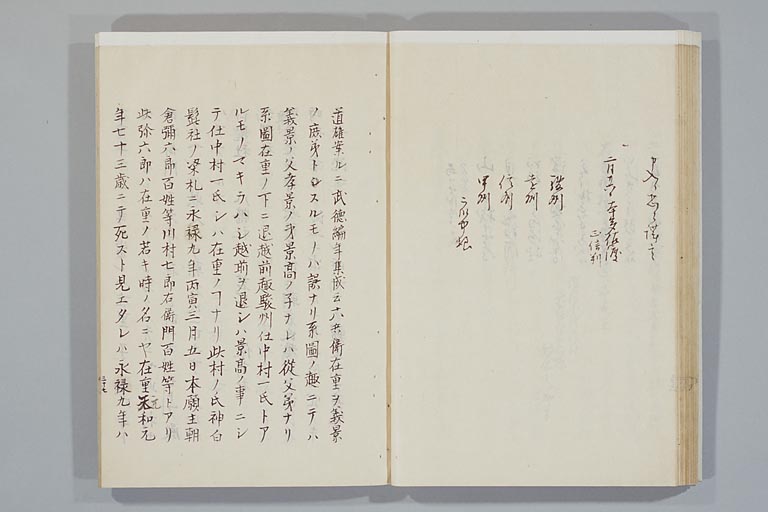 二月五日 本多佐渡
正信判
駿州
遠州
信州
甲州
道雄案ルニ武徳編年集成云六兵衛在重ヲ義景
ノ庶弟トスルモノハ誤ナリ系圖ノ趣ニテハ
義景ノ父孝景ノ弟景高ノ子ナレハ從父弟ナリ
系圖在重ノ下ニ退越前趣駿州仕中村一氏トア
ルモノマキラハシ越前ヲ退シハ景高ノ事ニシ
テ仕中村一氏シハ在重ノ丁ナリ此村ノ氏神白
髭社ノ梁札ニ永禄九年丙寅三月五日本願主朝
倉彌六郎百姓等川村七郎右衛門百姓等トアリ
此弥六郎ハ在重ノ若キ時ノ名ニヤ在重元和元
年七十三歳ニテ死スト見エタレハ永禄九年ハ